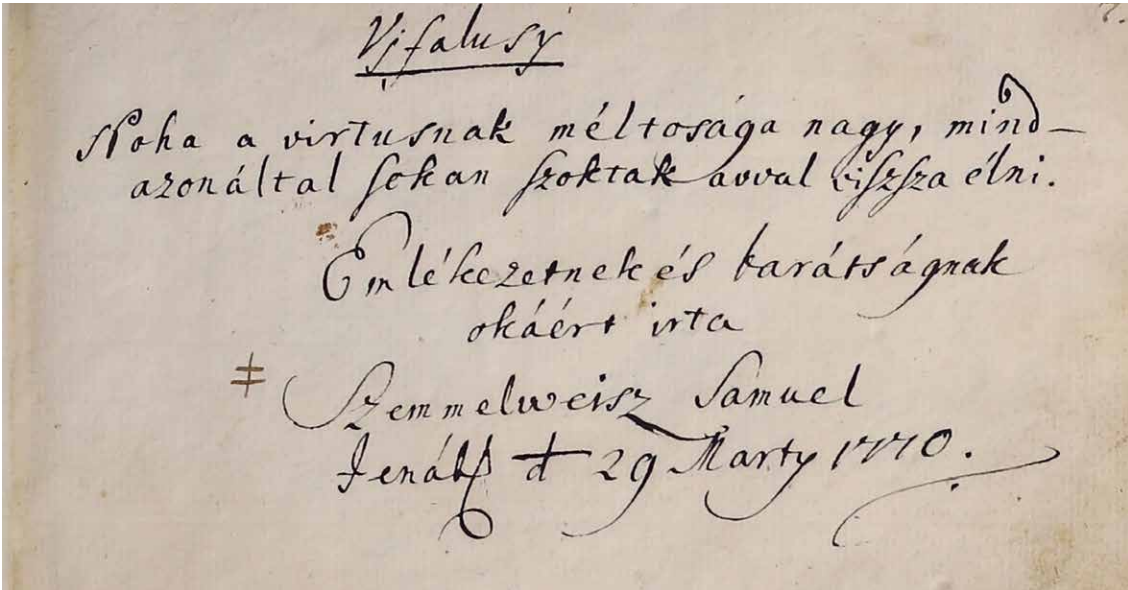 Vjfalusy
Noha a virtusnak méltosága nagy, mind-
azonáltal sokan szoktak avval viszsza élni.
Emlékezetnek és barátságnak
okáért irta
Szemmelweisz Samuel
d 29 Marty 1770.